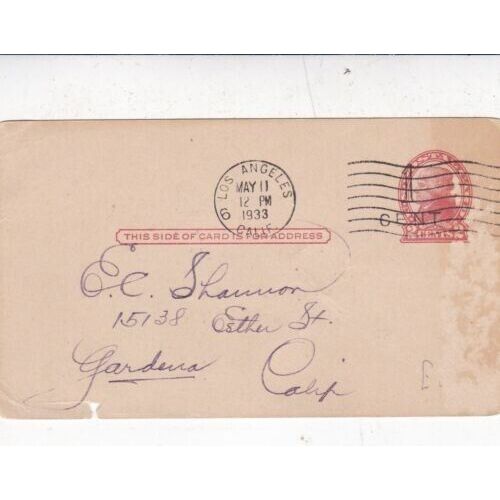 LOS ANGELES
CALIF.
MAY 11
12 PM
1933
1
CENT
THIS SIDE OF CARD IS FOR ADDRESS
E.C. Shannon
15138 Esther St.
Gardena
Calif
E.